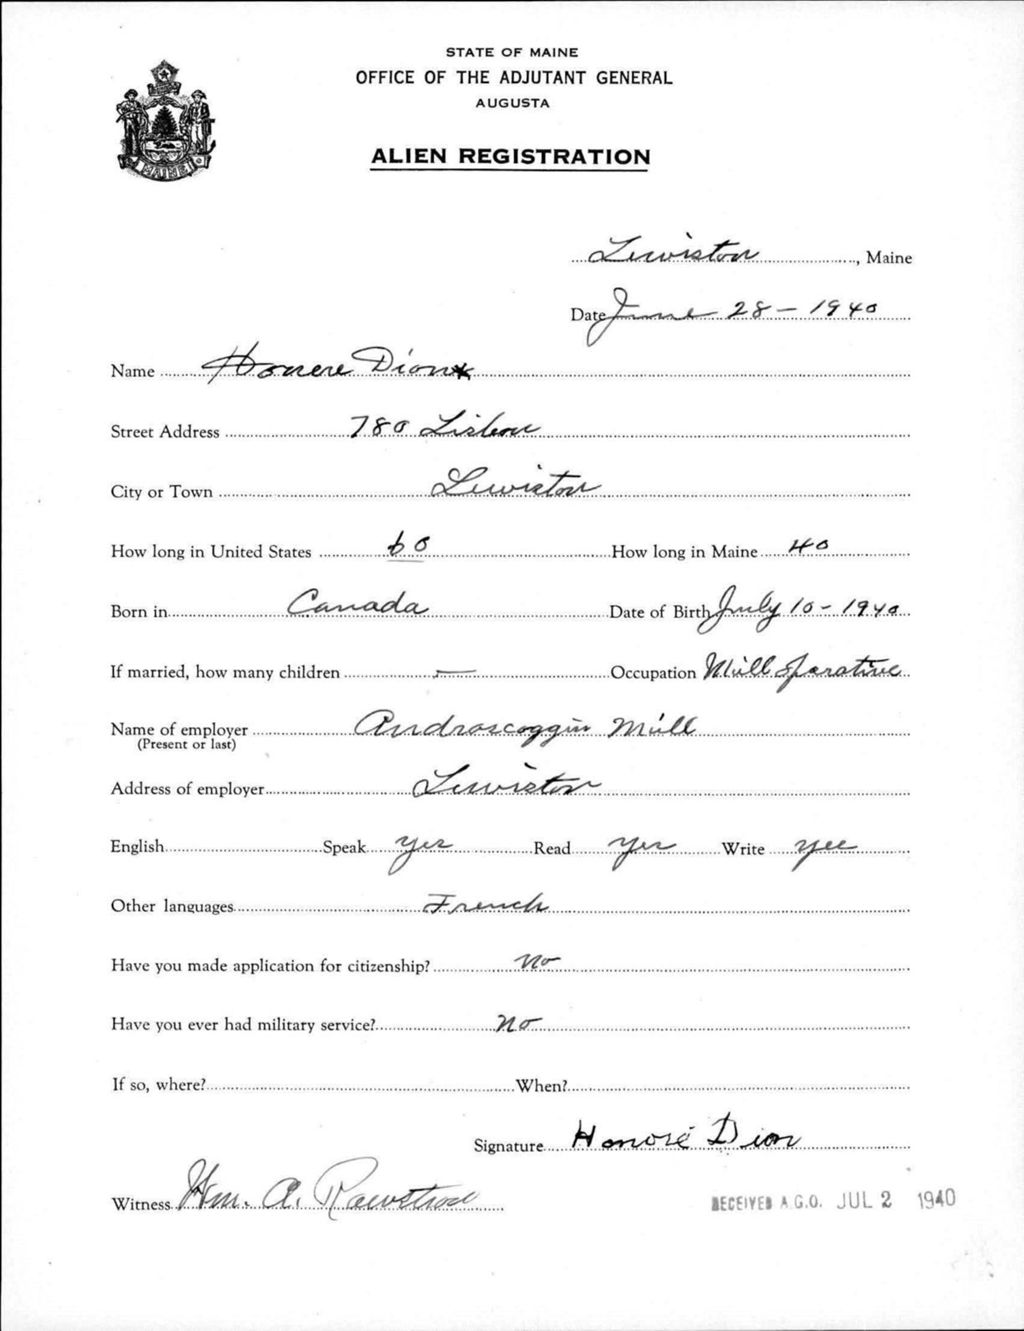 STATE OF MAINE
OFFICE OF THE ADJUTANT GENERAL
AUGUSTA
ALIEN REGISTRATION
MAINE
Lewiston, Maine
Date June 28 - 1940
Name Honere Dion
Street Address 780 Lisbon
City or Town Lewiston
How long in United States 60 How long in Maine 40
Born in Canada Date of Birth July 10 - 1940
If married, how many children — Occupation Mill Operative
Name of employer Androscoggin Mill
(Present or last)
Address of employer Lewiston
English Speak yes Read yes Write yes
Other languages French
Have you made application for citizenship? No
Have you ever had military service? No
If so, where? When?
Signature Honoré Dion
Witness Wm. A.
RECEIVED A.G.O. JUL 2 1940